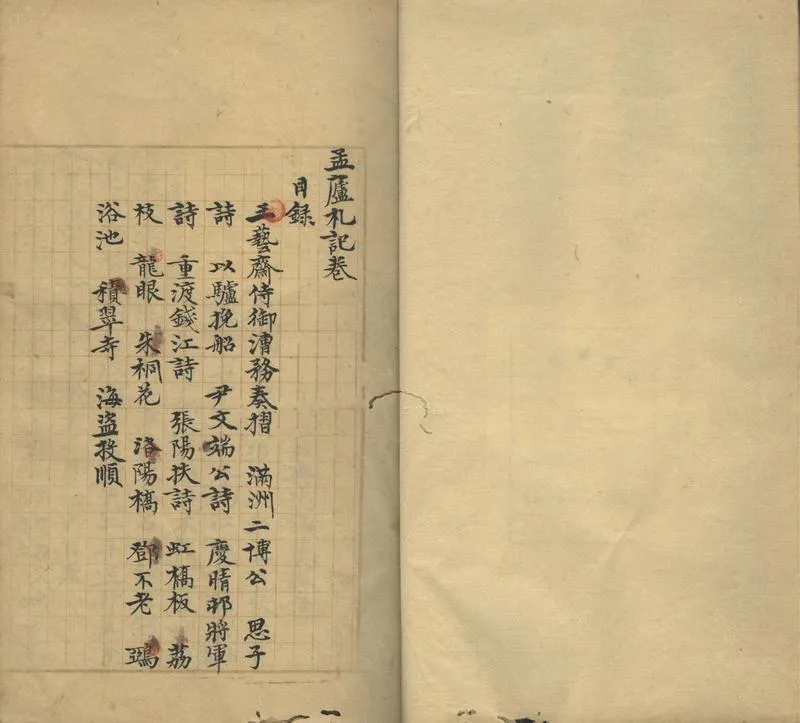 孟廬札記卷
目錄
王藝齋侍御漕務奏摺 滿洲二博公 思子
詩 以驢挽船 尹文端公詩 慶晴邨將軍
詩 重渡錢江詩 張陽扶詩 虹橋板 荔
枝 龍眼 朱桐花 洛陽橋 鄧不老 鸂
浴池 積翠寺 海盜投順